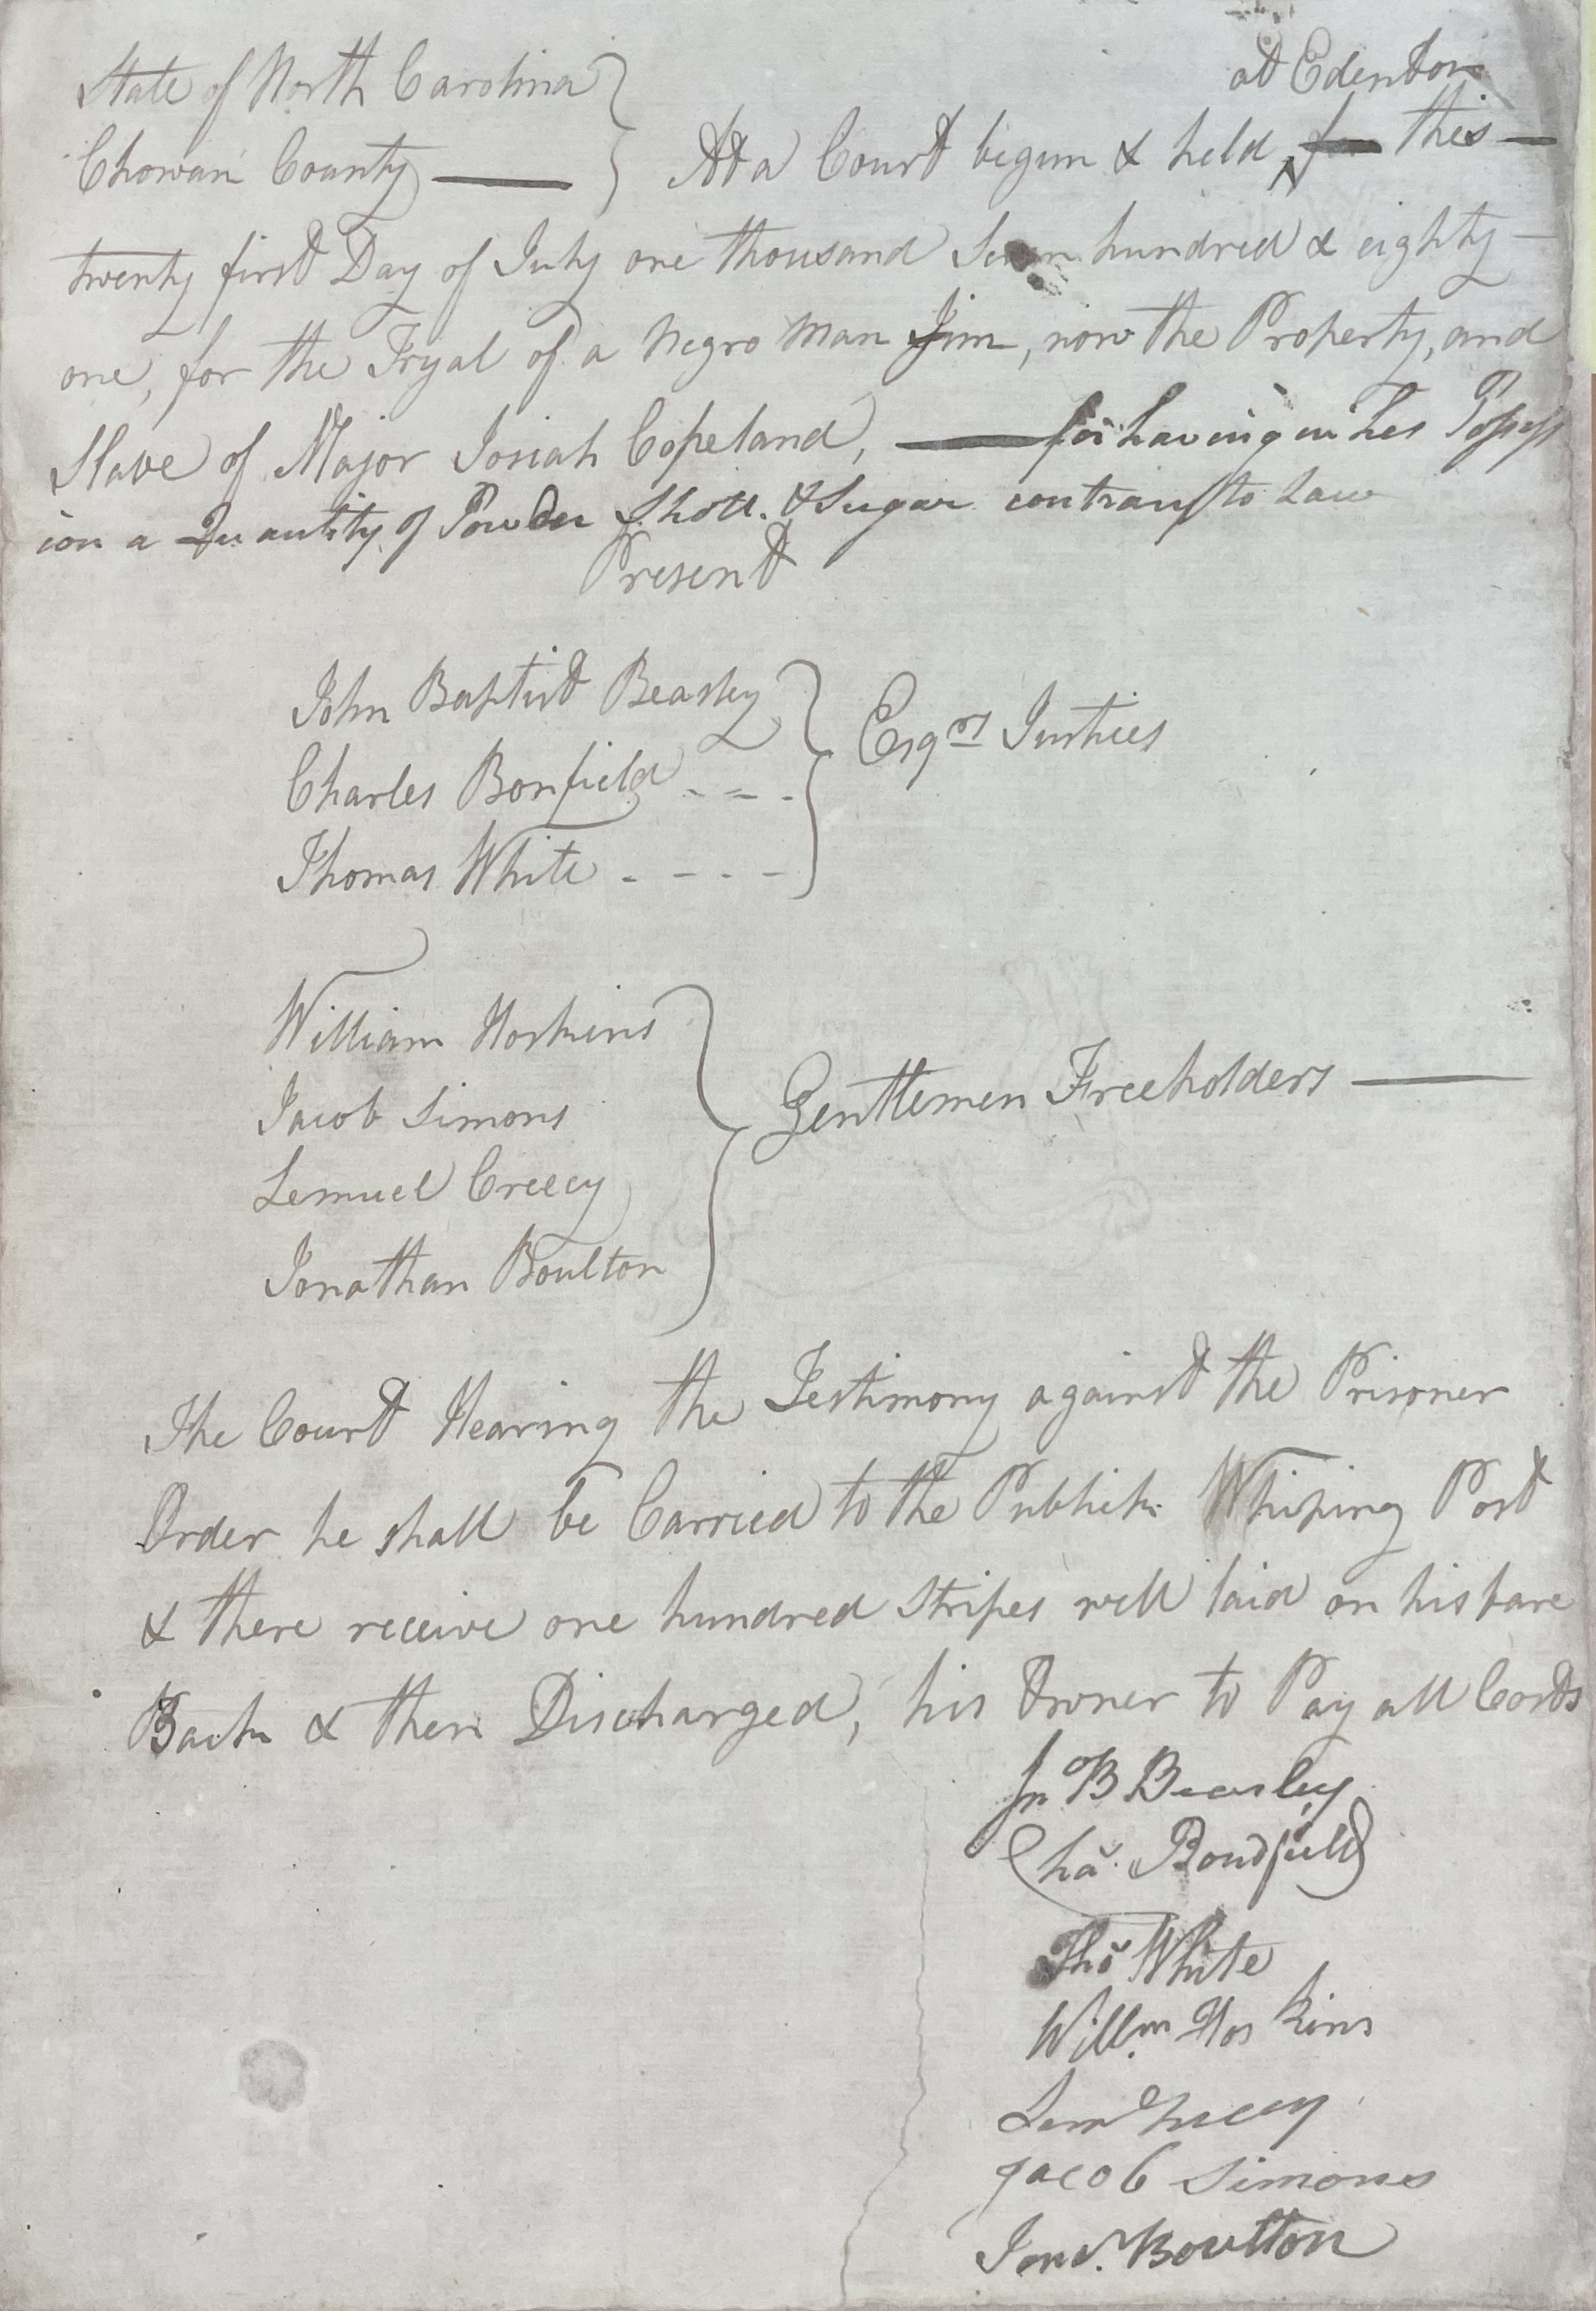 State of North Carolina
Chowan County —
at Edenton
At a Court begun & held ^ for this —
twenty first Day of July one thousand Seven hundred & eighty —
one, for the Tryal of a Negro Man Jim, now the Property, and
Slave of Major Josiah Copeland, — for having in his Possess
ion a Quantity of Powder Shott. & Sugar contrary to Law
Present
John Baptist Beasley
Charles Bonfield - - -
Thomas White - - - -
Esqrs Justices
William Hoskins
Jacob Simons
Lemuel Creecy
Jonathan Boulton
Gentlemen Freeholders —
The Court Hearing the Testimony against the Prisoner
Order he shall be Carried to the Publick Whiping Post
& there receive one hundred Stripes well laid on his bare
Back & then Discharged, his Owner to Pay all Costs
Jn B Beasley
Chas. Bondfield
Thos White
Willm Hoskins
Lem Creecy
Jacob Simons
Jona. Boulton